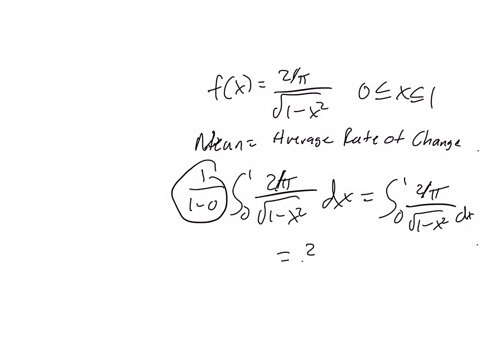 f(x) = 2/π / √(1-x²)   0 ≤ x ≤ 1
Mean = Average Rate of Change
1/(1-0) ∫₀¹ 2/π / √(1-x²) dx = ∫₀¹ 2/π / √(1-x²) dx
= ?